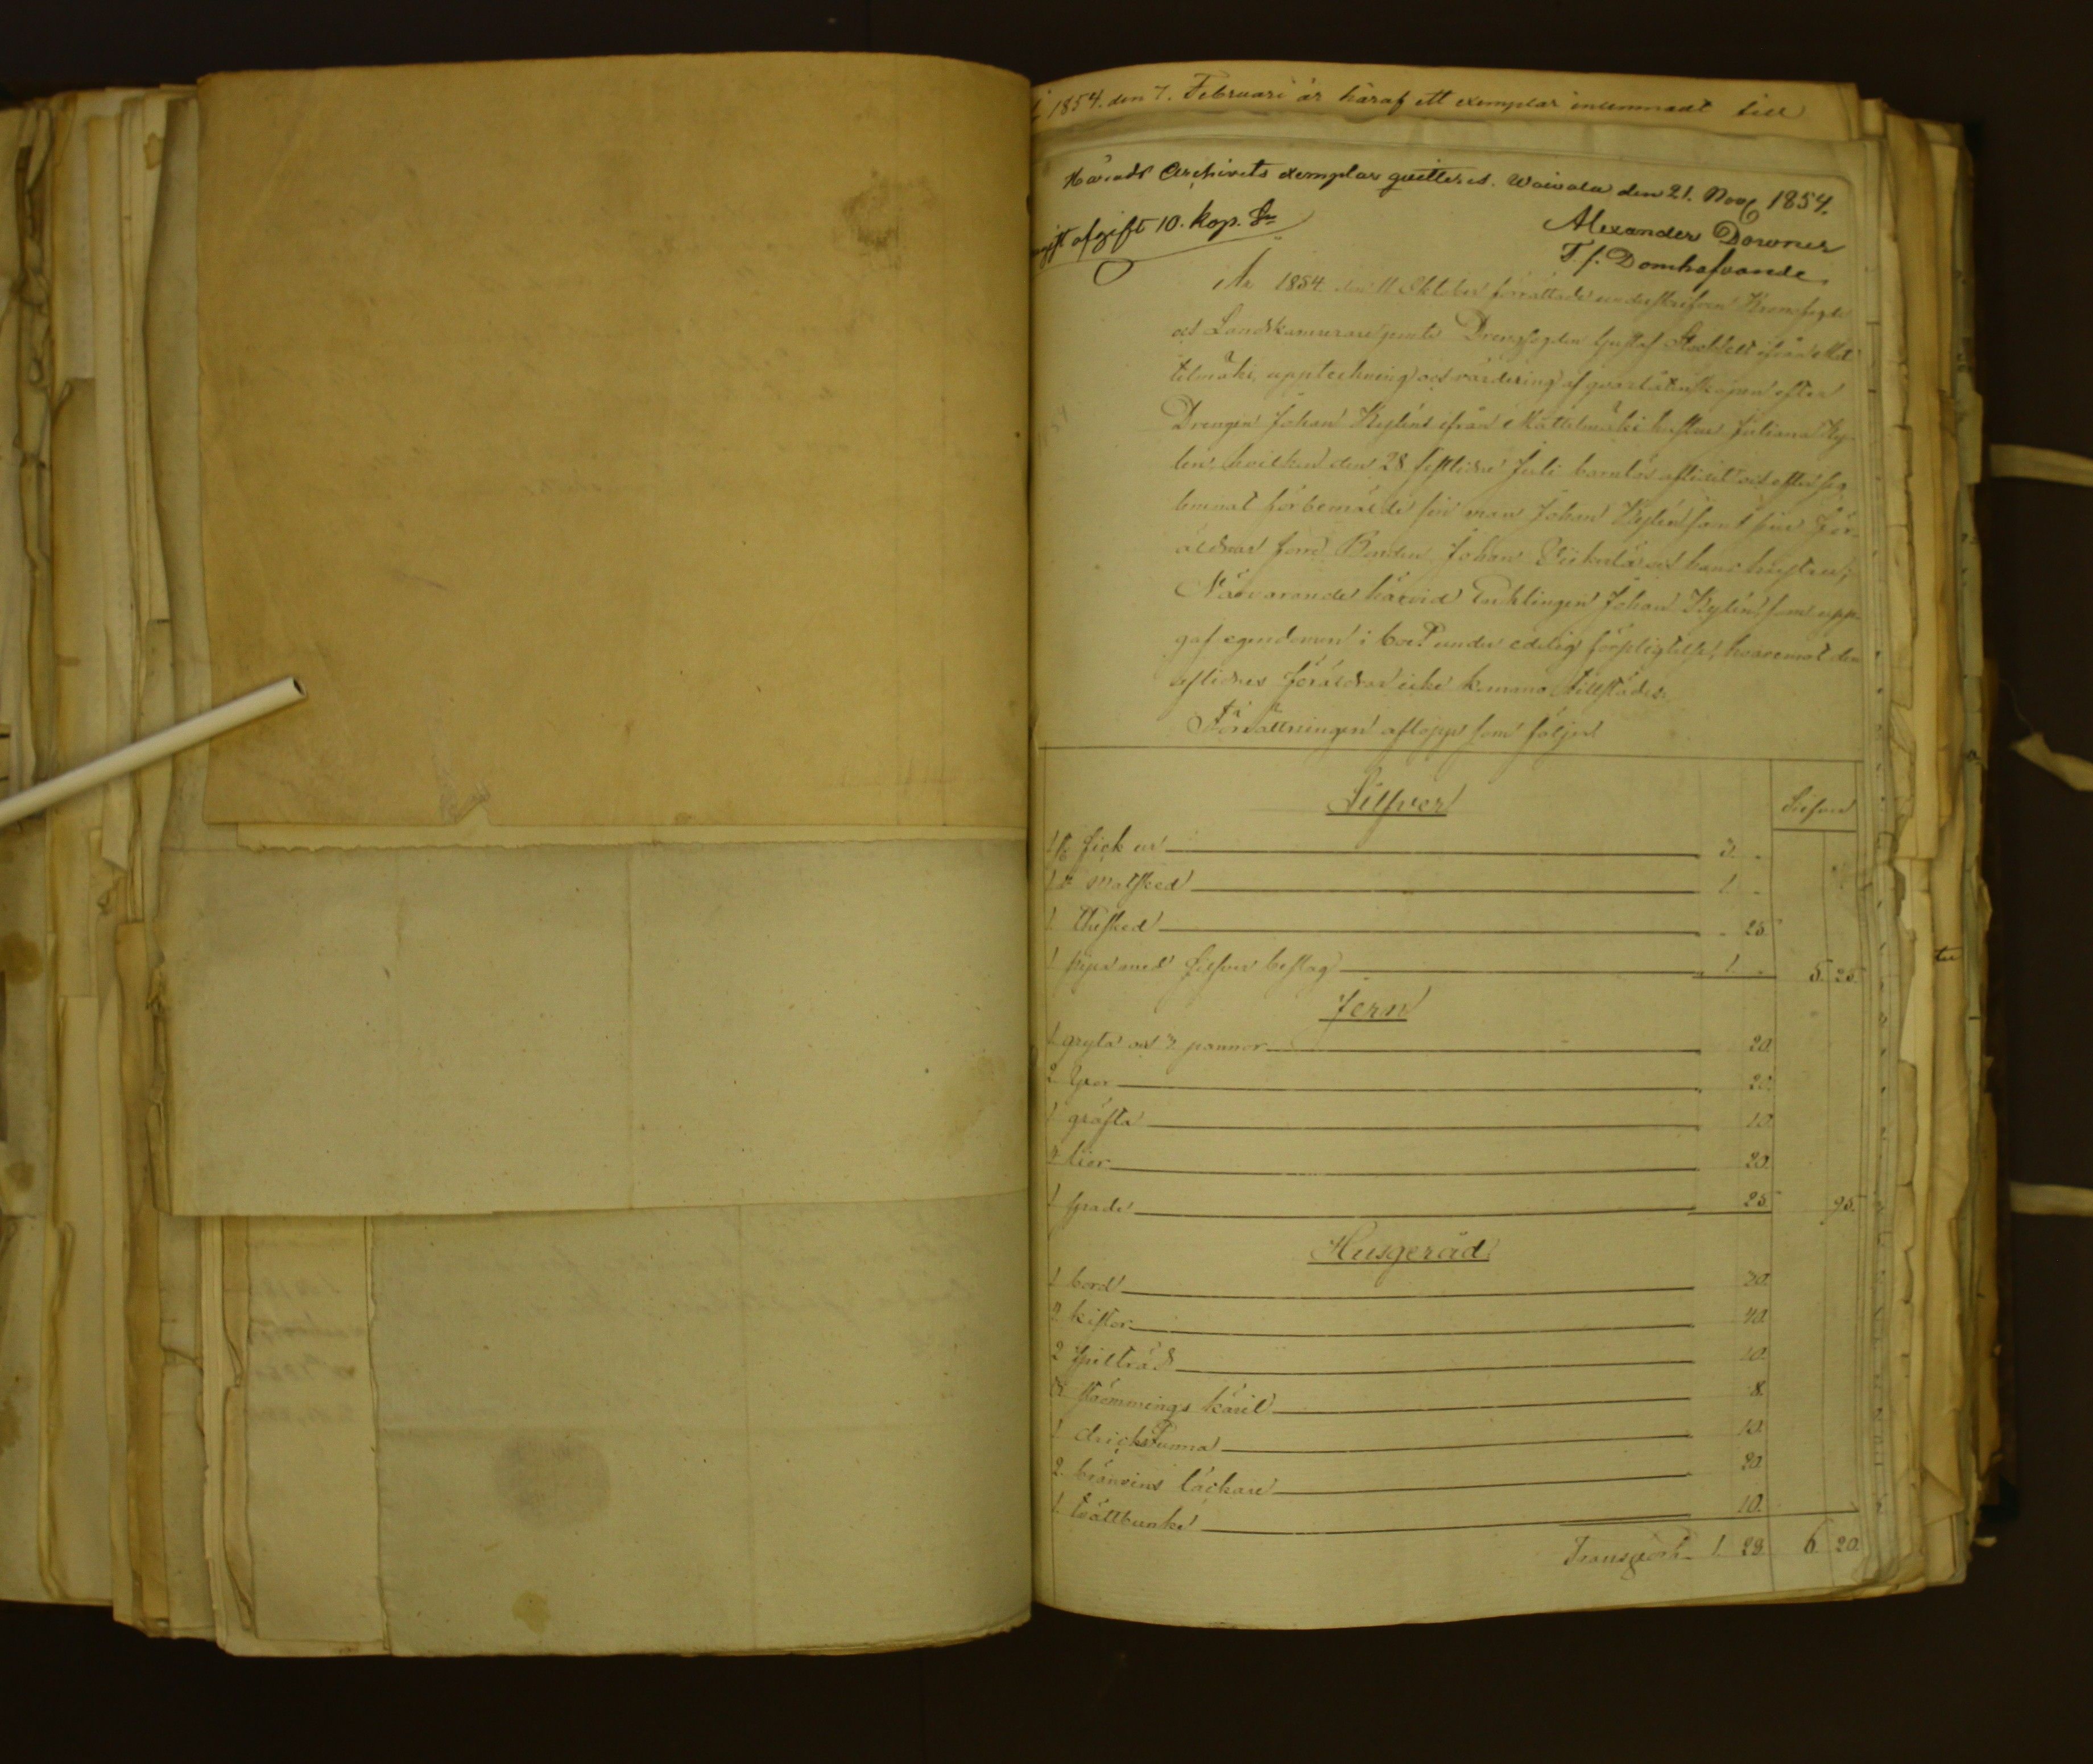 1854. den 7. Februari är häraf ett exemplar inlemnadt till
Härads Archivets exemplar quitteres. Woivala den 21. Nov 1854.
afgift 10. kop. Sr
Alexander Downer
T. f. Domhafvande
År 1854 den 11 Oktober förrättade undertecknad Kronofogde
och Landskamrerare jemte Drengfogden Gustaf ifrån Mat
tilmäki, uppteckning och värdering af qvarlåtenskapen efter
Drengen Johan Kyléns ifrån Mattilmäki hustru Juliana Ky-
len, hvilken den 28 sistledne Juli barnlös aflidit och efter sig
lemnat förbemälde sin man Johan Kylén samt sina För-
äldrar förre Bonden Johan och hans hustru;
Närvarande härvid Enklingen Johan Kylén, som upp-
gaf egendomen i boet under edelig förpligtelse, hvaremot den
aflidnes föräldrar icke kommo tillstädes.
Förrättningen aflopp som följer
Silfver
Silfver
1 st fick ur 3. -
1 st Matsked 1. -
1 Thesked - 25.
1 pipa med silfver beslag 1. - 5. 25.
Jern
1 gryta och 3 pannor 20.
2 yxor 20.
1 gräfta 10.
4 liar 20.
1 spade 25 95.
Husgeråd
1 bord 30.
4 kistor 40.
2 10.
stämmings käril 8.
1 dricks tunna 10.
2 bränvins läckare 20.
1 tvättbunke 10.
Transport 1. 28. 6. 20.